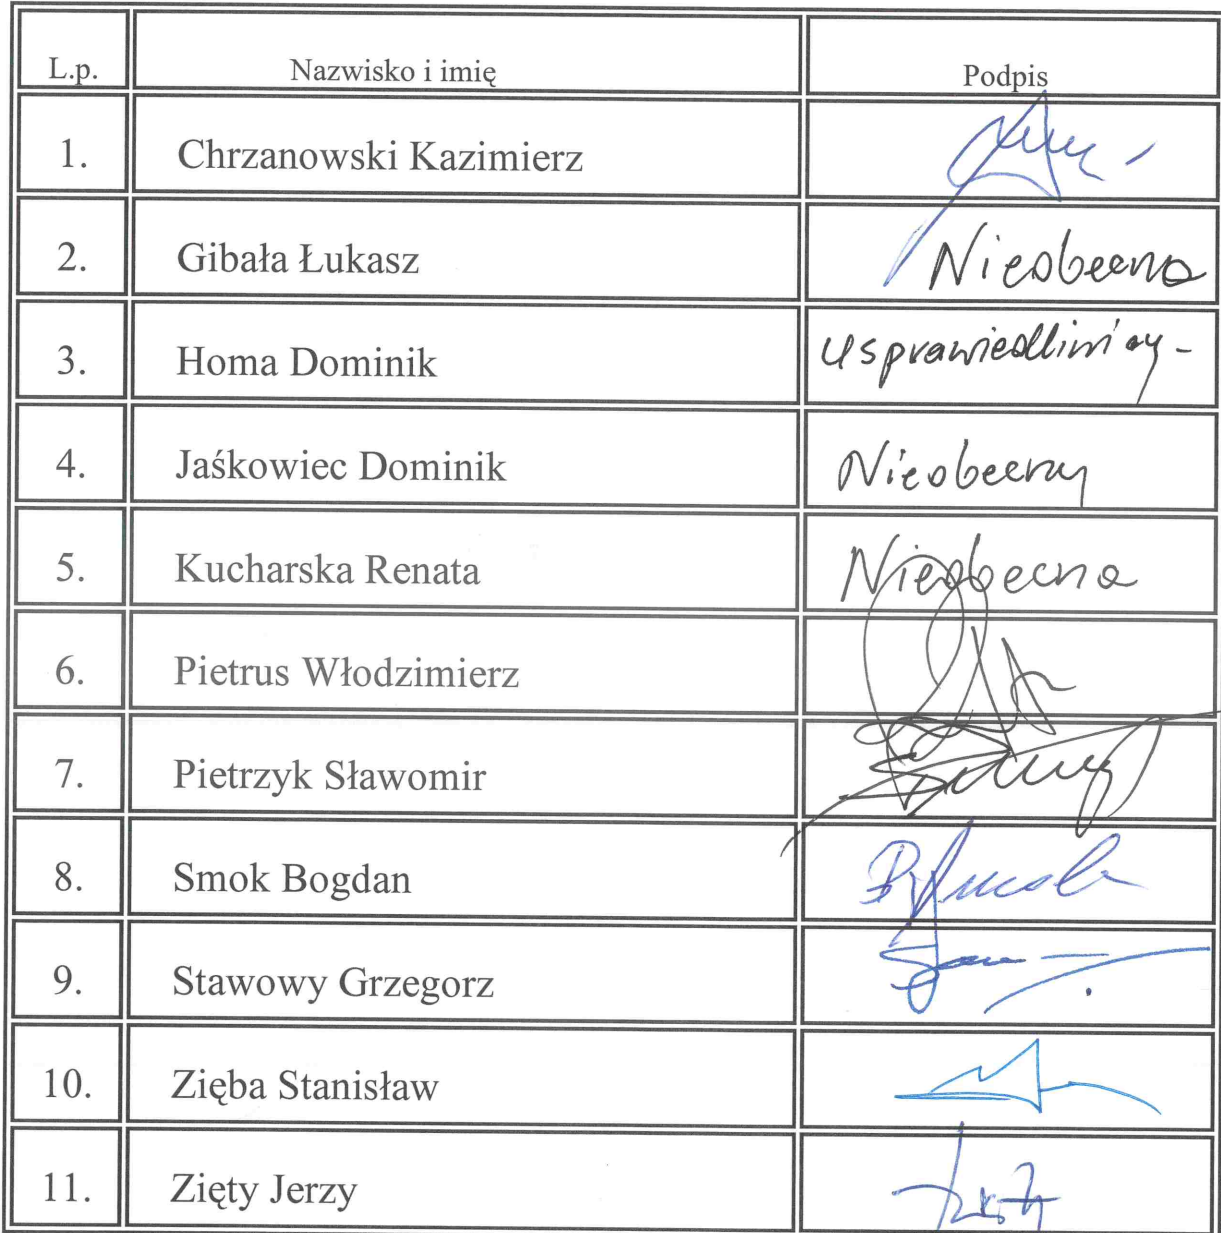 L.p. Nazwisko i imię Podpis
1. Chrzanowski Kazimierz
2. Gibała Łukasz Nieobecna
3. Homa Dominik usprawiedliwiony
4. Jaśkowiec Dominik Nieobecny
5. Kucharska Renata Nieobecna
6. Pietrus Włodzimierz
7. Pietrzyk Sławomir
8. Smok Bogdan
9. Stawowy Grzegorz
10. Zięba Stanisław
11. Zięty Jerzy